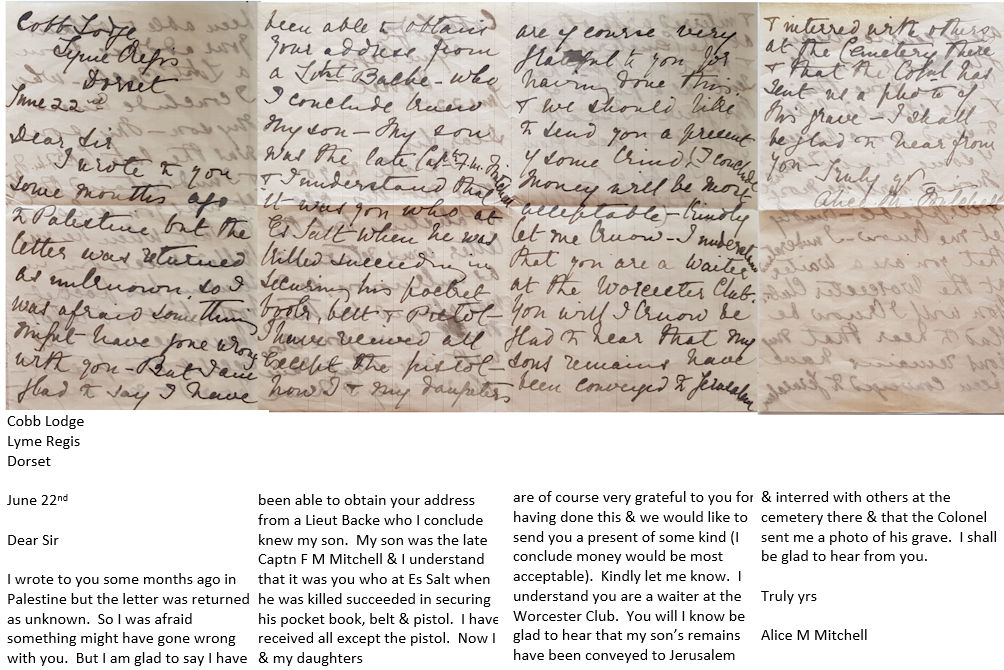 Cobb Lodge
Lyme Regis
Dorset
June 22nd
Dear Sir
I wrote to you
some months ago
in Palestine, but the
letter was returned
as unknown. so I
was afraid something
might have gone wrong
with you - But I am
glad to say I have
been able to obtain
your address from
a Lieut Backe - who
I conclude knew
my son - My son
was the late Captn F.M. Mitchell
& I understand that
it was you who at
Es Salt when he was
killed succeeding in
securing his pocket
book, belt & pistol -
I have received all
except the pistol -
now I & my daughters
are of course very
grateful to you for
having done this.
& we should like
to send you a present
of some kind, (I conclude
money will be most
acceptable - Kindly
let me know - I understand
that you are a waiter
at the Worcester Club.
You will I know be
glad to hear that my
sons remains have
been conveyed to Jerusalem
& interred with others
at the Cemetery there
& that the Colnl has
sent me a photo of
his grave - I shall
be glad to hear from
you - Truly yrs
Alice M. Mitchell
Cobb Lodge
Lyme Regis
Dorset
June 22nd
Dear Sir
I wrote to you some months ago in
Palestine but the letter was returned
as unknown. So I was afraid
something might have gone wrong
with you. But I am glad to say I have
been able to obtain your address
from a Lieut Backe who I conclude
knew my son. My son was the late
Captn F M Mitchell & I understand
that it was you who at Es Salt when
he was killed succeeded in securing
his pocket book, belt & pistol. I have
received all except the pistol. Now I
& my daughters
are of course very grateful to you for
having done this & we would like to
send you a present of some kind (I
conclude money would be most
acceptable). Kindly let me know. I
understand you are a waiter at the
Worcester Club. You will I know be
glad to hear that my son’s remains
have been conveyed to Jerusalem
& interred with others at the
cemetery there & that the Colonel
sent me a photo of his grave. I shall
be glad to hear from you.
Truly yrs
Alice M Mitchell